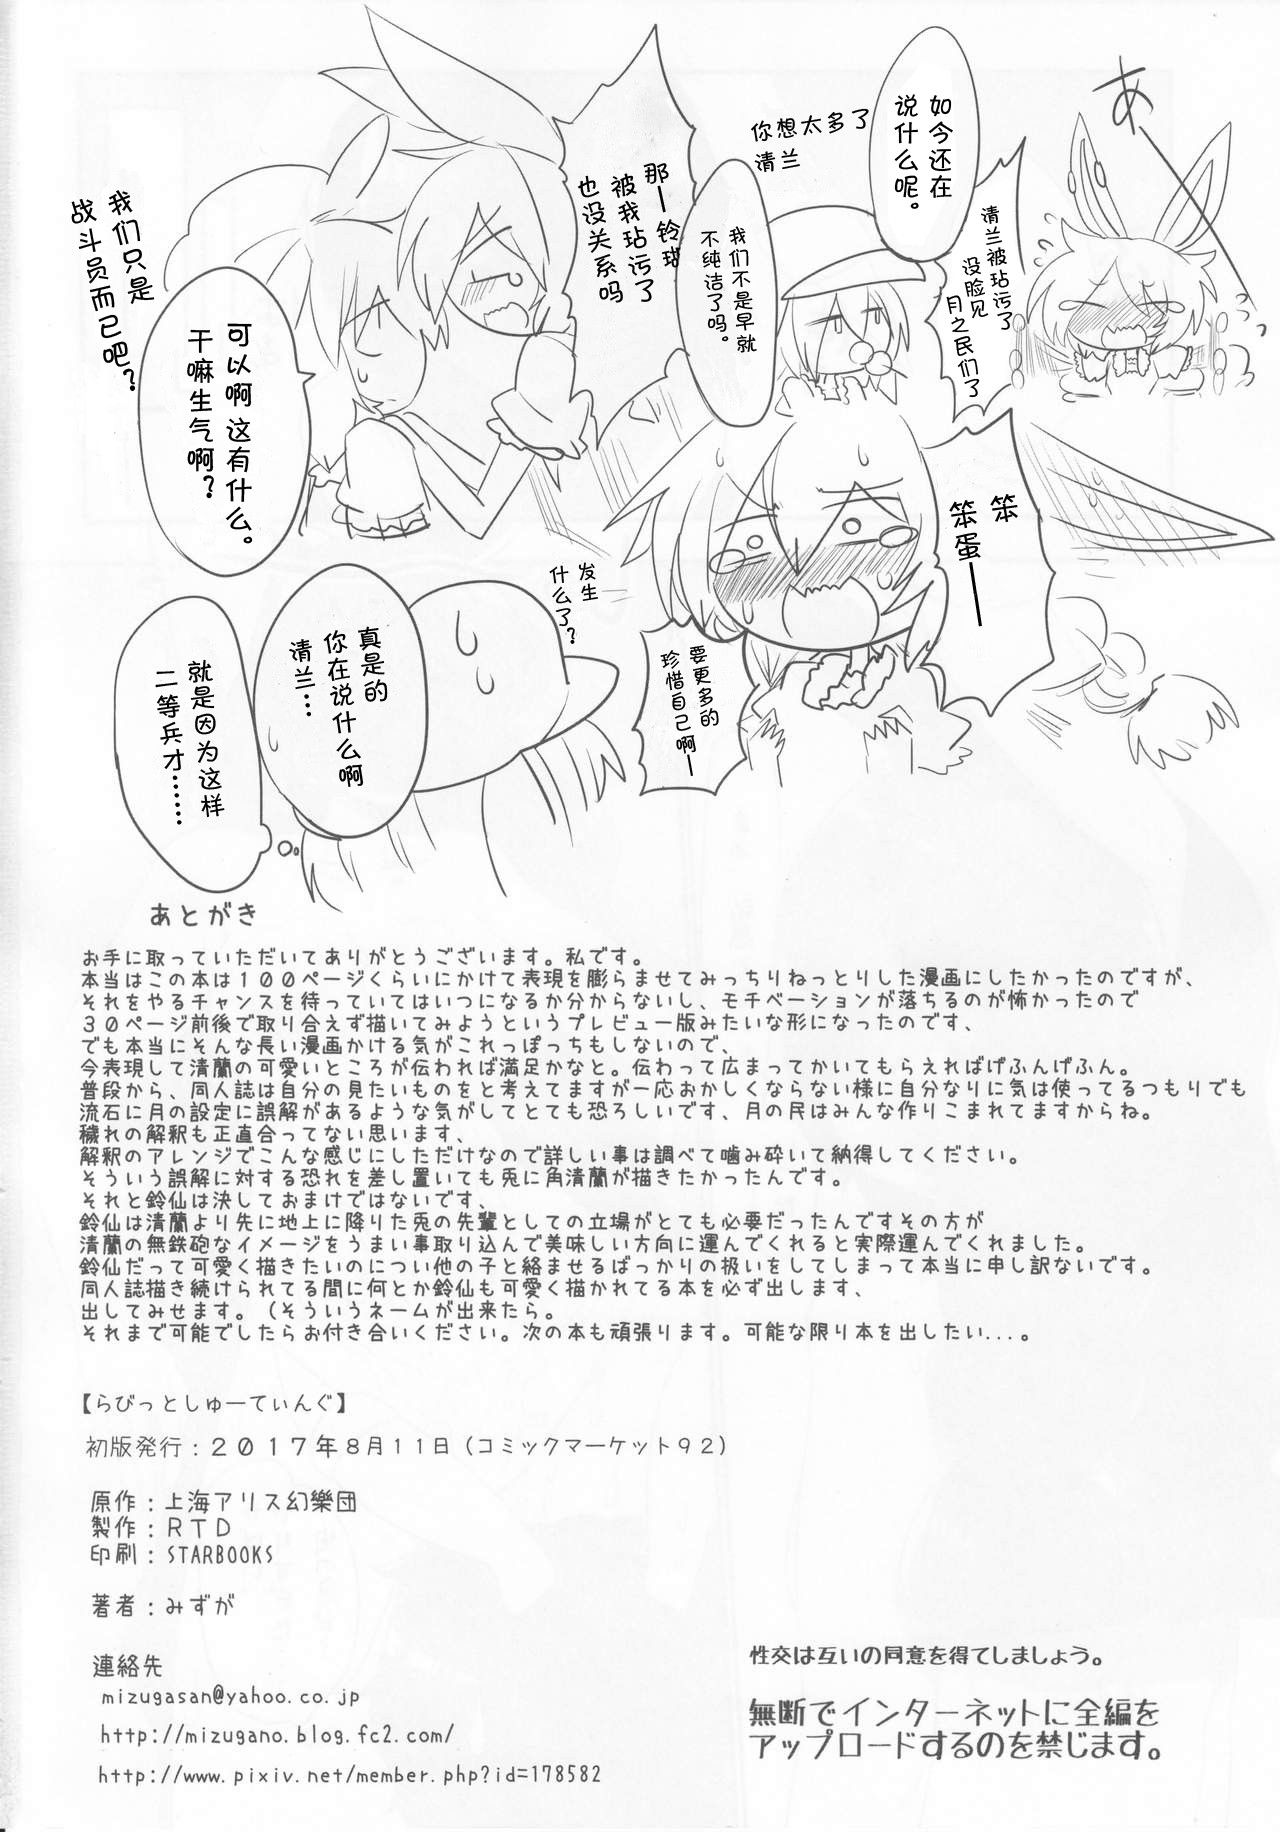 あ
清兰被玷污了
没脸见
月之民们了
如今还在
说什么呢。
你想太多了
清兰
我们不是早就
不纯洁了吗。
那—铃瑚
被我玷污了
也没关系吗
我们只是
战斗员而已吧？
可以啊这有什么。
干嘛生气啊？
笨
笨蛋——
要更多的
珍惜自己啊—
发生
什么了？
真是的
你在说什么啊
清兰…
就是因为这样
二等兵才……
あとがき
お手に取っていただいてありがとうございます。私です。
本当はこの本は１００ページくらいにかけて表現を膨らませてみっちりねっとりした漫画にしたかったのですが、
それをやるチャンスを待っていてはいつになるか分からないし、モチベーションが落ちるのが怖かったので
３０ページ前後で取り合えず描いてみようというプレビュー版みたいな形になったのです、
でも本当にそんな長い漫画かける気がこれっぽっちもしないので、
今表現して清蘭の可愛いところが伝われば満足かなと。伝わって広まってかいてもらえればげふんげふん。
普段から、同人誌は自分の見たいものをと考えてますが一応おかしくならない様に自分なりに気は使ってるつもりでも
流石に月の設定に誤解があるような気がしてとても恐ろしいです、月の民はみんな作りこまれてますからね。
穢れの解釈も正直合ってない思います、
解釈のアレンジでこんな感じにしただけなので詳しい事は調べて噛み砕いて納得してください。
そういう誤解に対する恐れを差し置いても兎に角清蘭が描きたかったんです。
それと鈴仙は決しておまけではないです、
鈴仙は清蘭より先に地上に降りた兎の先輩としての立場がとても必要だったんですその方が
清蘭の無鉄砲なイメージをうまい事取り込んで美味しい方向に運んでくれると実際運んでくれました。
鈴仙だって可愛く描きたいのについ他の子と絡ませるばっかりの扱いをしてしまって本当に申し訳ないです。
同人誌描き続けられてる間に何とか鈴仙も可愛く描かれてる本を必ず出します、
出してみせます。（そういうネームが出来たら。
それまで可能でしたらお付き合いください。次の本も頑張ります。可能な限り本を出したい...。
【らびっとしゅーてぃんぐ】
初版発行：２０１７年８月１１日（コミックマーケット９２）
原作：上海アリス幻樂団
製作：ＲＴＤ
印刷：STARBOOKS
著者：みずが
連絡先
mizugasan@yahoo.co.jp
http://mizugano.blog.fc2.com/
http://www.pixiv.net/member.php?id=178582
性交は互いの同意を得てしましょう。
無断でインターネットに全編を
アップロードするのを禁じます。